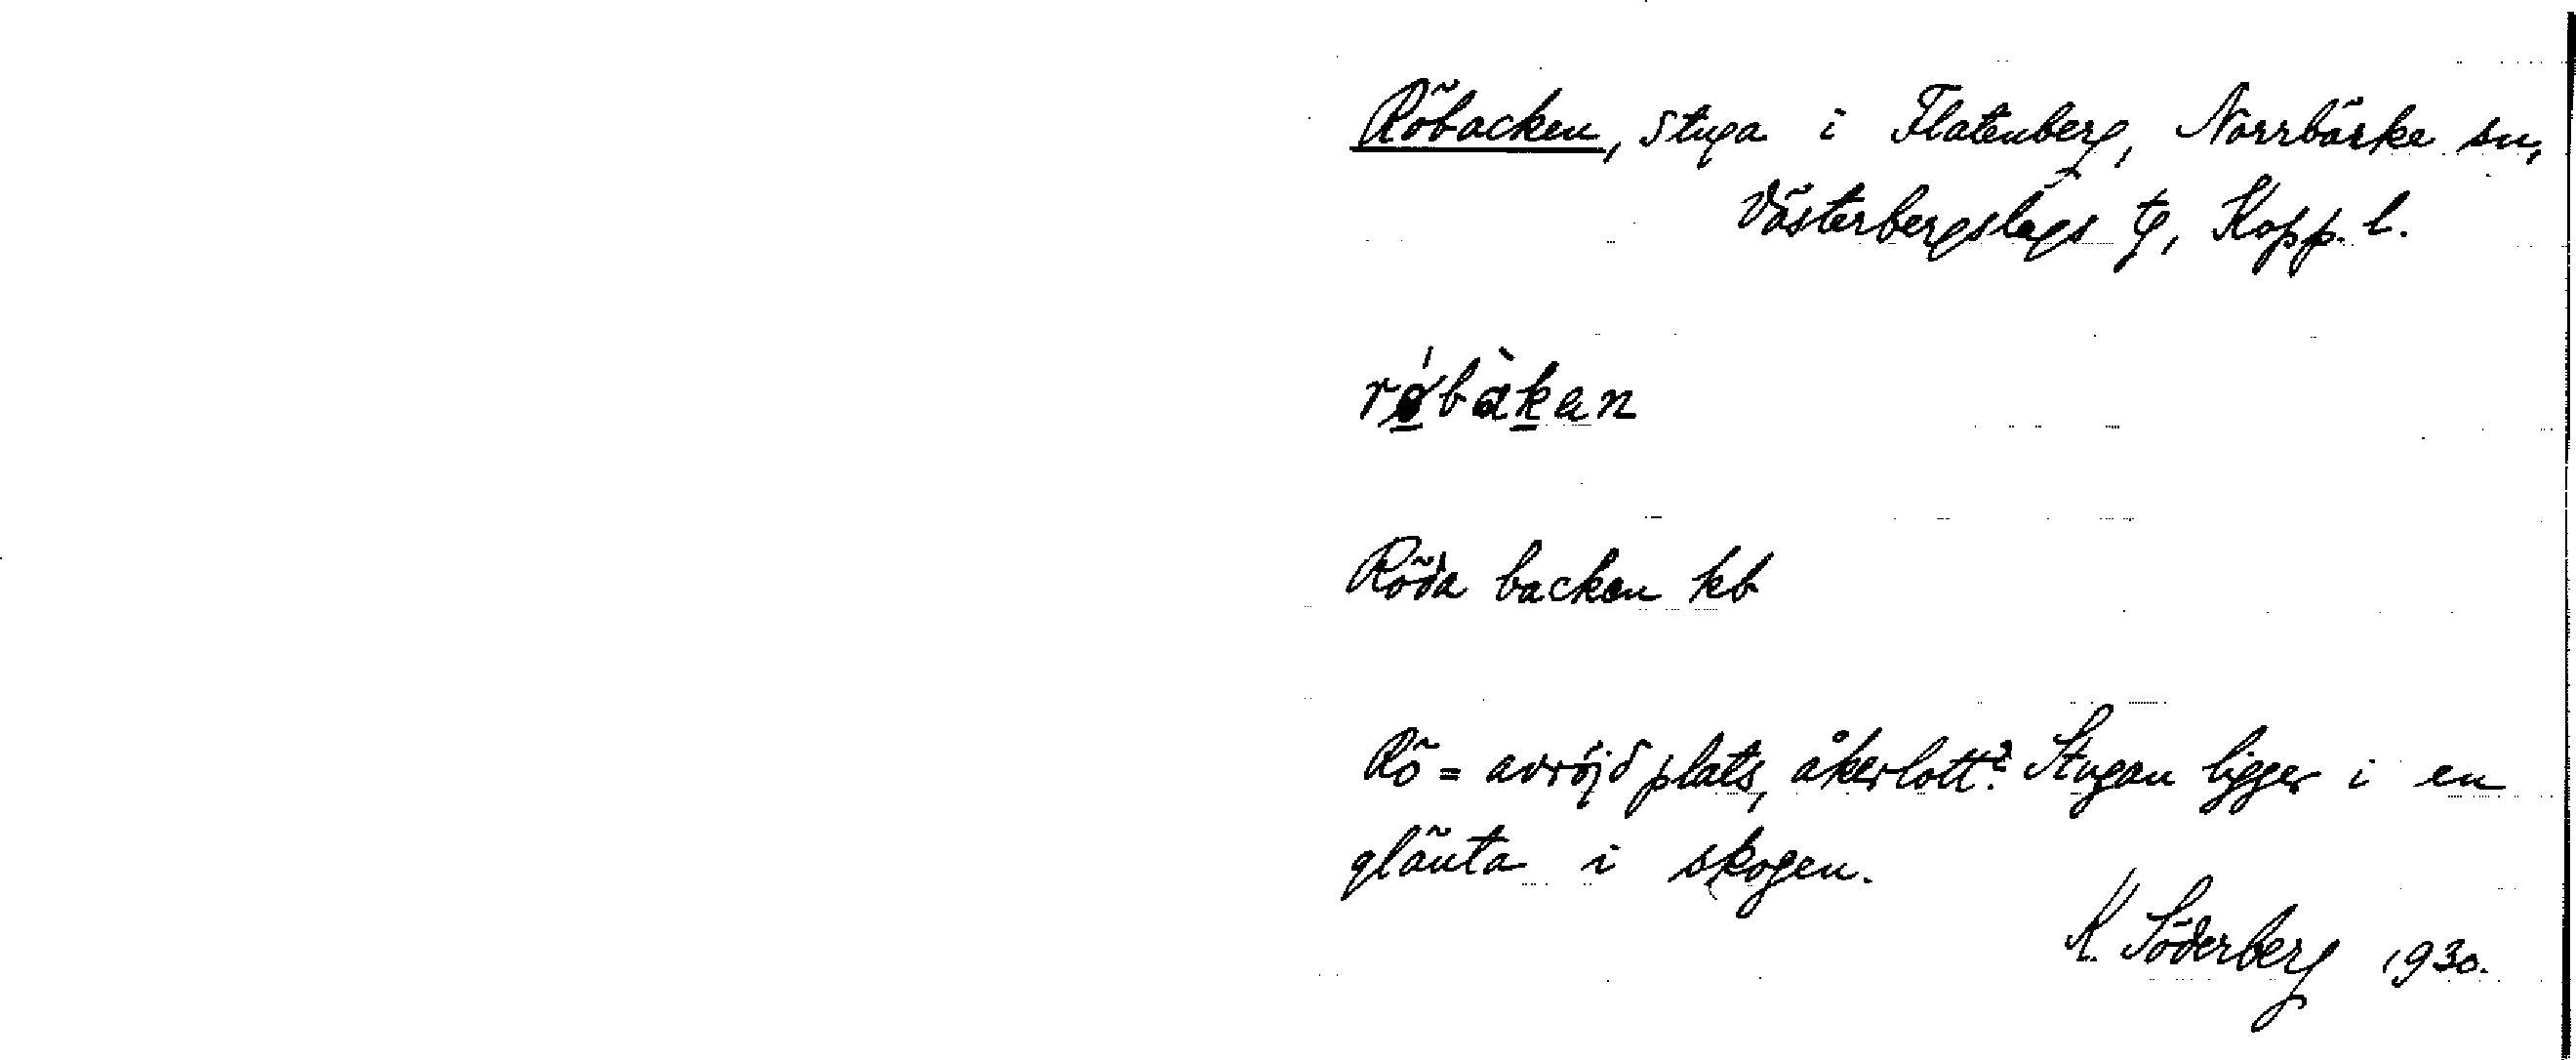 Röbacken, stuga i Flatenberg, Norrbärke sn,
Västerbergslags tg, Kopp. l.
rǿbàkan
Röda backen kb
Rö = avröjd plats, åkerlott? Stugan ligger i en
glänta i skogen.
K. Söderberg 1930.